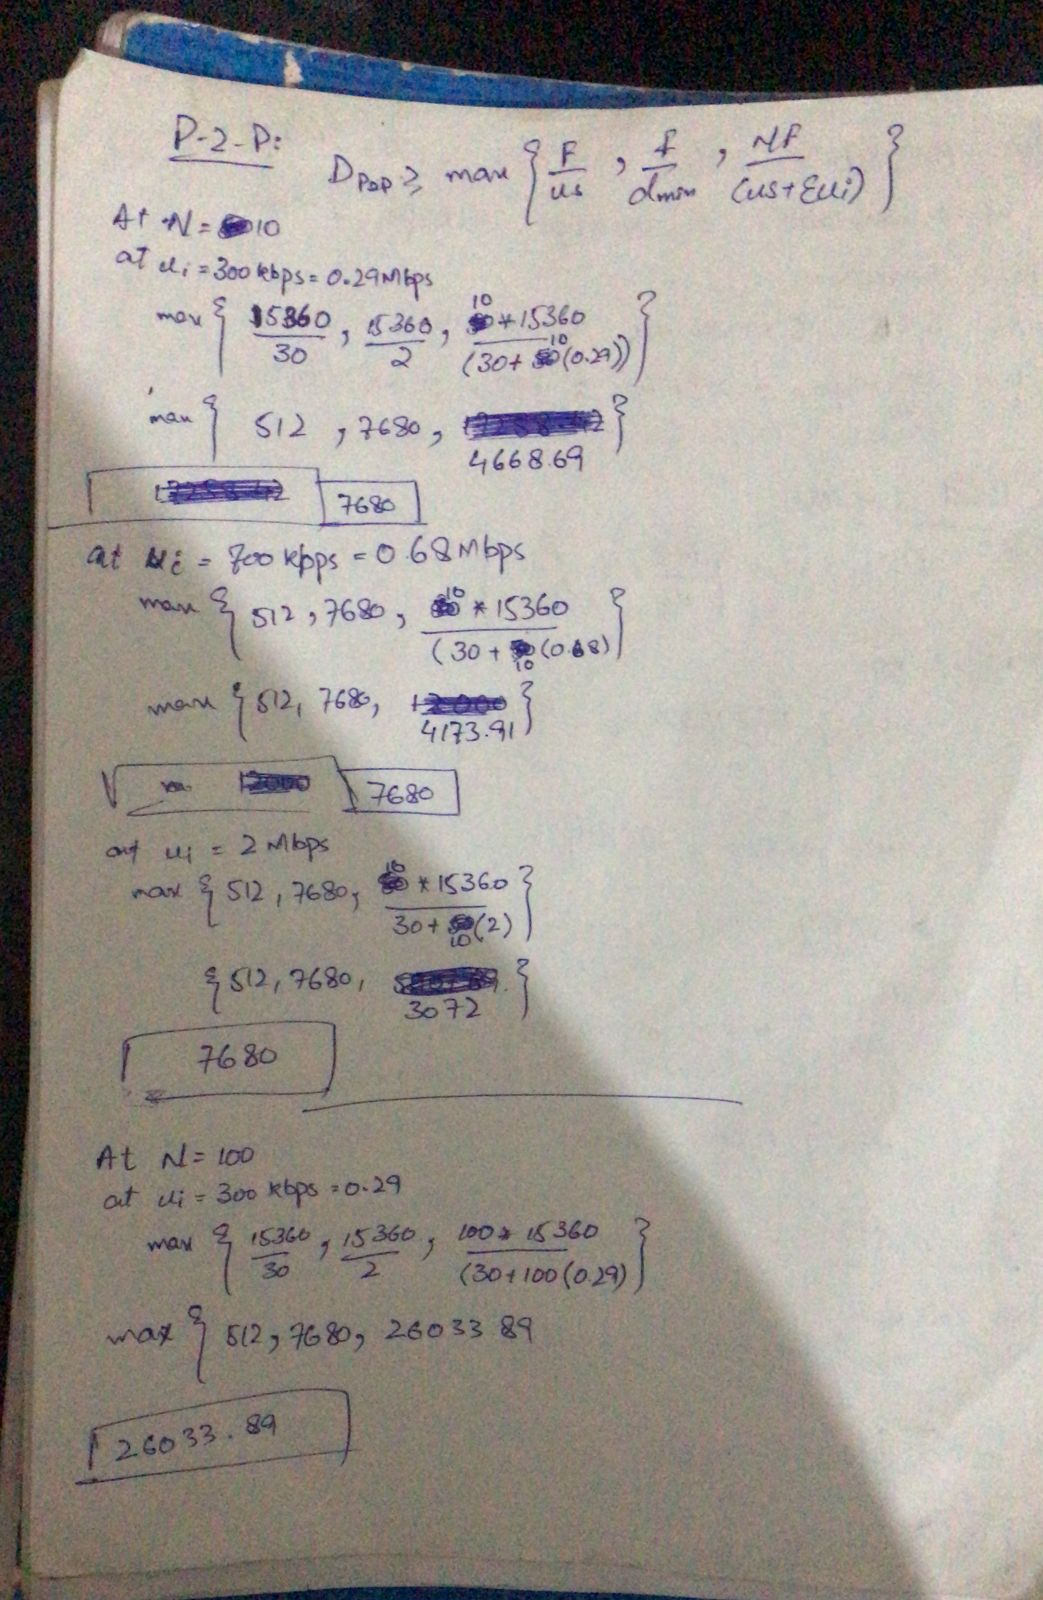 P-2-P:
DP2P ≥ max { F/us , f/dmin , NF/(us+Σui) }
At N = 10
at ui = 300 kbps = 0.29 Mbps
max { 15360/30 , 15360/2 , 10*15360/(30+10(0.29)) }
max { 512 , 7680, 4668.69 }
7680
at ui = 700 kbps = 0.68 Mbps
max { 512, 7680, 10*15360/(30+10(0.68) }
max { 512, 7680, 4173.91 }
7680
at ui = 2 Mbps
max { 512, 7680, 10*15360/30+10(2) }
{ 512, 7680, 3072 }
7680
At N = 100
at ui = 300 kbps = 0.29
max { 15360/30 , 15360/2 , 100*15360/(30+100(0.29) }
max { 512, 7680, 26033 89
26033.89